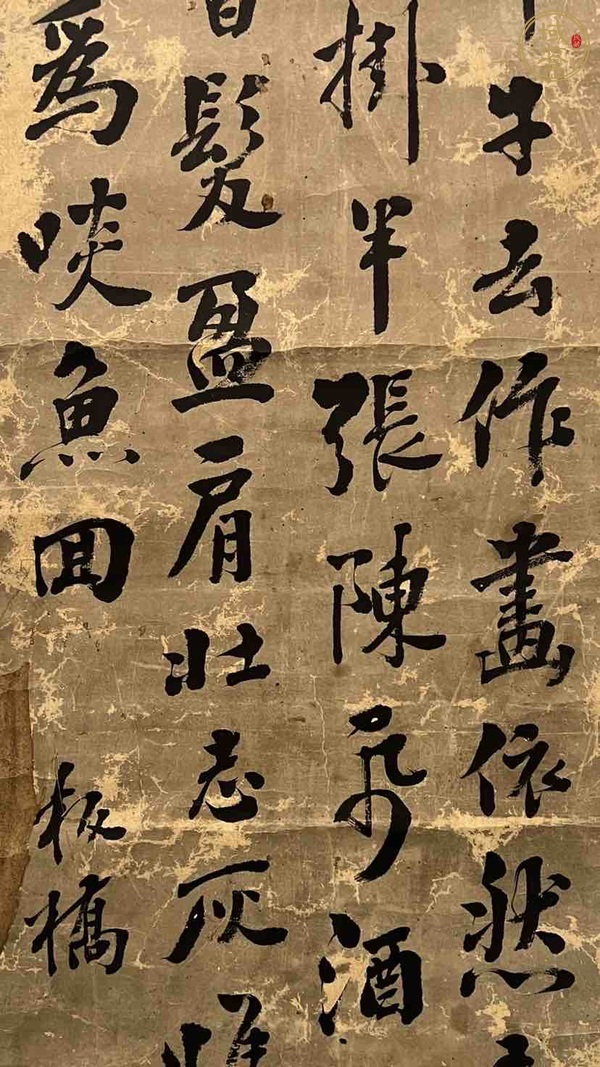 牛去作畫依然
掛半張陳酒
髮盈肩壯志灰
爲啖魚回
板橋